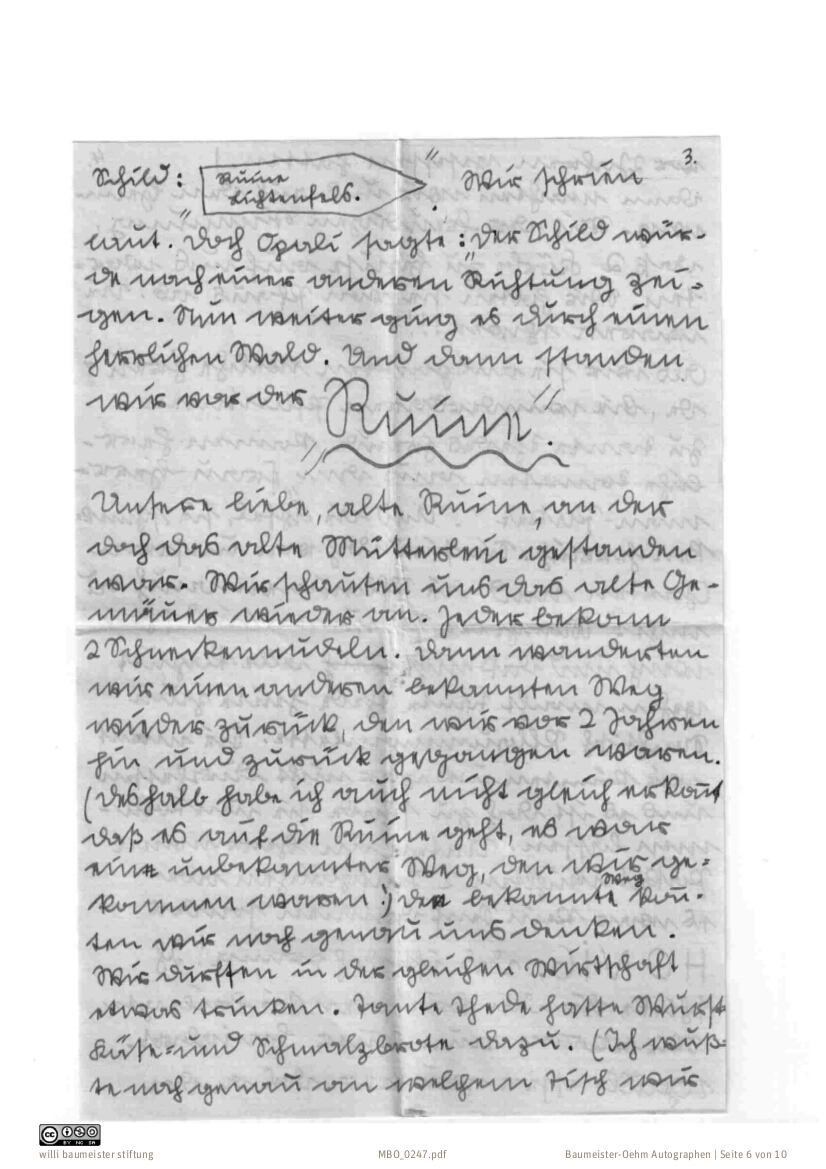 3.
Schild: Ruine
Lichtenfels. " Wir schrien
laut. "Doch Opali sagte: "der Schild wür-
de nach einer anderen Richtung zei-
gen. Nun weiter ging es durch einen
herrlichen Wald. Und dann standen
wir vor der Ruine."
Unsere liebe, alte Ruine, an der
doch das alte Mütterlein gestanden
war. Wir schauten uns das alte Ge-
mäuer wieder an. Jeder bekam
2 Schneckennudeln. Dann wanderten
wir einen anderen bekannten Weg
wieder zurück, den wir vor 2 Jahren
hin und zurück gegangen waren.
(Deshalb habe ich auch nicht gleich erkan̄t
daß es auf die Ruine geht, es war
ein unbekannter Weg, den wir ge-
kommen waren!) den bekannte Weg kon̄-
ten wir noch genau uns denken.
Wir durften in der gleichen Wirtschaft
etwas trinken. Tante Thede hatte Wurst-
Käse- und Schmalzbrote dazu. (Ich wuß-
te noch genau an welchem Tisch wir
willi baumeister stiftung
MBO_0247.pdf
Baumeister-Oehm Autographen | Seite 6 von 10
CC BY NC SA